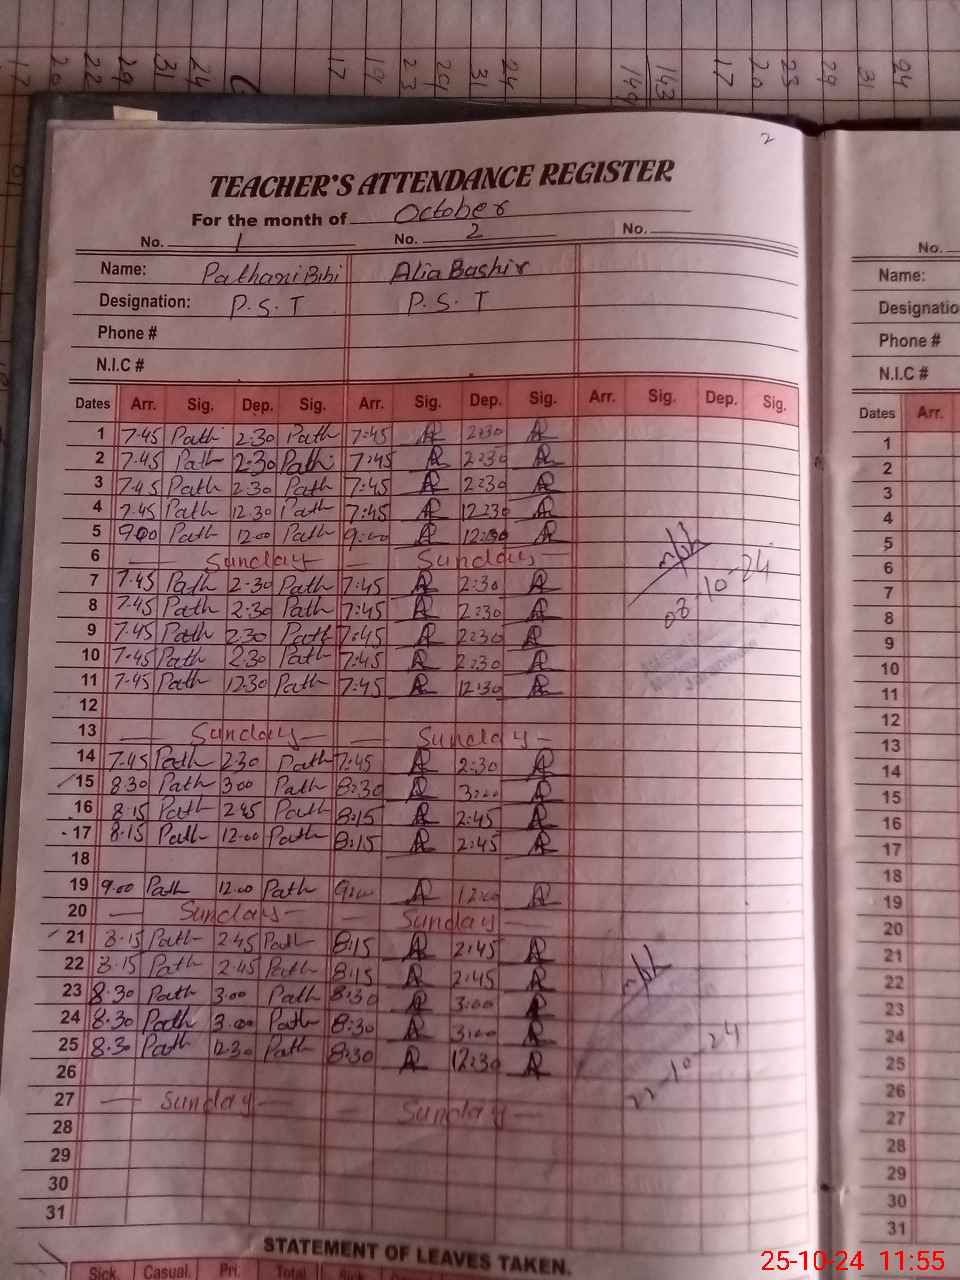 17 20 22 29 31 24 17 19 23 29 31 24 149 143 17 20 23 29 31 24
2
TEACHER'S ATTENDANCE REGISTER
For the month of October
No. 1 No. 2 No. No.
Name: Pathani Bibi Alia Bashir Name:
Designation: P.S.T P.S.T Designatio
Phone # Phone #
N.I.C # N.I.C #
Dates Arr. Sig. Dep. Sig. Arr. Sig. Dep. Sig. Arr. Sig. Dep. Sig. Dates Arr.
1 7.45 Path 2:30 Path 7:45 2:30 1
2 7.45 Path 2:30 Path 7:45 2:30 2
3 7.45 Path 2.30 Path 7:45 2:30 3
4 7.45 Path 12.30 Path 7:45 12:30 4
5 9.00 Path 12.00 Path 9:00 12:00 5
6 Sunday Sunday 6
7 7.45 Path 2.30 Path 7:45 2:30 7
8 7.45 Path 2:30 Path 7:45 2:30 8
08-10-24
9 7.45 Path 2.30 Path 7:45 2:30 9
10 7.45 Path 2.30 Path 7:45 2:30 10
11 7.45 Path 12.30 Path 7:45 12:30 11
12 12
13 Sunday Sunday 13
14 7.45 Path 2.30 Path 7:45 2:30 14
15 8.30 Path 3.00 Path 8:30 3:00 15
16 8.15 Path 2.45 Path 8:15 2:45 16
17 8.15 Path 12.00 Path 8:15 2:45 17
18 18
19 9.00 Path 12.00 Path 9:00 12:00 19
20 Sunday Sunday 20
21 8.15 Path 2.45 Path 8:15 2:45 21
22 8.15 Path 2.45 Path 8:15 2:45 22
23 8.30 Path 3.00 Path 8:30 3:00 23
24 8.30 Path 3.00 Path 8:30 3:00 24
25 8.30 Path 12.30 Path 8:30 12:30 25
22-10-24
26 26
27 Sunday Sunday 27
28 28
29 29
30 30
31 31
STATEMENT OF LEAVES TAKEN.
Sick. Casual. Pri. Total Sick.
25-10-24 11:55